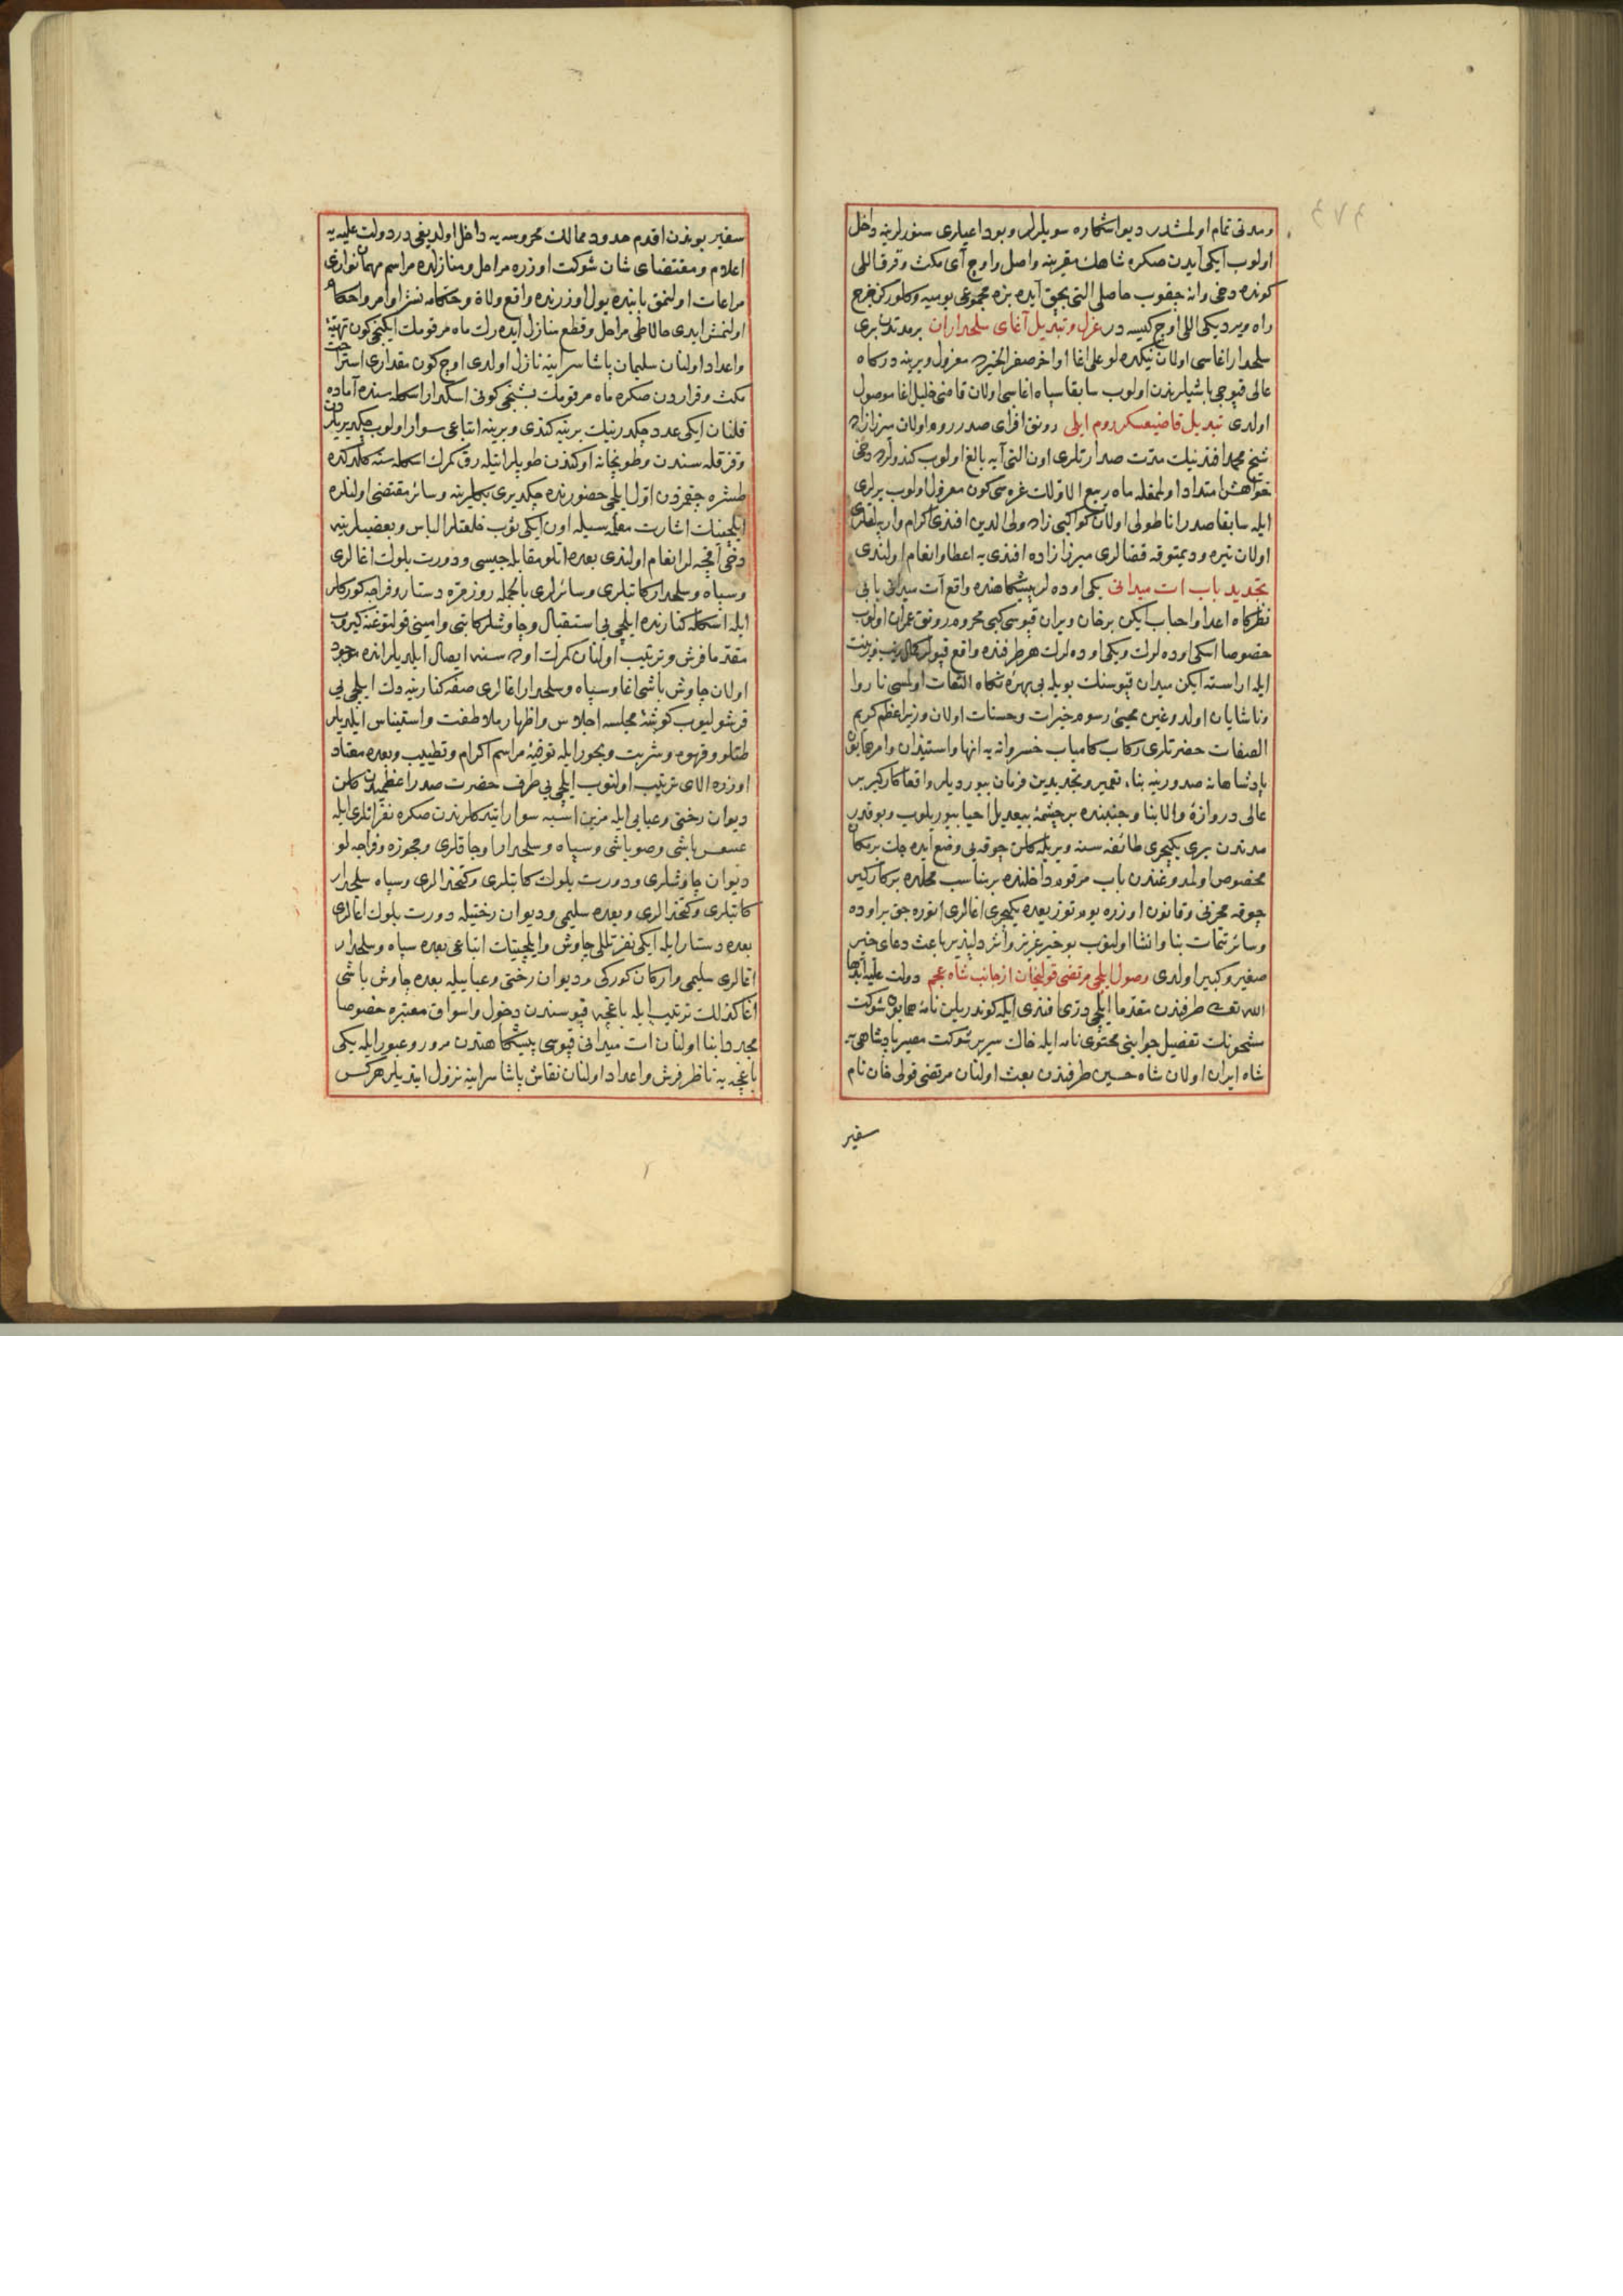 و مدتی تمام اولمشدر دیو اشکاره سویلرلر و بو داعیلری سنورلرینه داخل
اولوب ایکی آیدن صکره شاهك مقرینه واصل و اوچ آی مکث و قرق اللی
کونده دخی وانه چیقوب حاصلی التی بچق آیده بزه مجموعی یومیه و کلورکن خرج
راه ویردیکی اللی اوچ کیسه در عزل و تبدیل آغای سلحداران بر مدتدن بری
سلحدار اغاسی اولان نیکده لو علی اغا اواخر صفر الخیرده معزول و یرینه درکاه
عالی قپوجی باشیلرندن اولوب سابقا سپاه اغاسی اولان قاضی خلیل اغا موصول
اولدی تبدیل قاضیعسکر روم ایلی رونق افزای صدر روم اولان میرزازاده
شیخ محمد افندینك مدت صدارتلری اون التی آیه بالغ اولوب کندولرده دخی
خواهش امتداد اولمغله ماه ربیع الاولك غره سی کون معزول اولوب یرلری
ایله سابقا صدر اناطولی اولان کواکبی زاده ولی الدین افندی اکرام و ارپه لقلری
اولان تیره و دیمتوقه قضالری میرزا زاده افندی یه اعطا و انعام اولندی
تجدید باب ات میدانی یکی اوده لر پیشکاهنده واقع آت میدانی بابی
نظرکاه اعدا و احباب ایکن بر خان ویران قپوسی کبی محروم رونق عمران اولوب
خصوصا اسکی اوده لرك و یکی اوده لرك هر طرفنده واقع قپولر کمال زیب و زینت
ایله اراسته ایکن میدان قپوسنك بویله بی بهره نکاه التفات اولمسی ناروا
و ناشایان اولدوغین محیی رسوم خیرات و حسنات اولان وزیر اعظم کریم
الصفات حضرتلری رکاب کامیاب خسروانه یه انها و استیذان و امر همایون
پادشاهانه صدورینه بناء تعمیر و تجدیدین فرمان بیوردیلر واقعا کارکیر بر
عالی دروازۀ والا بنا و جنبنده بر چشمۀ بیعدیل احیا بیوریلوب و بو قدر
مدتدن بری یکیچری طائفه سنه ویریله کلن چوقه یی وضع ایده جك بر مکان
مخصوص اولمدوغندن باب مرقوم داخلنده بر مناسب محلده بر کارکیر
چوقه مخزنی و قانون اوزره یوم توزیعده یکیچری اغالری اوتوره جق بر اوده
و سائر تتمات بنا و انشا اولنوب بو خیر عزیز و اثر دلپذیر باعث دعای خیر
صغیر و کبیر اولدی وصول ایلچی مرتضی قولیخان از جانب شاه عجم دولت علیه ابدها
الله تعالی طرفندن مقدما ایلچی دری افندی ایله کوندریلن نامۀ همایون شوکت
مشحونك تفصیل جوابنی محتوی نامه ایله خاك سریر شوکت مصیر پادشاهی یه
شاه ایران اولان شاه حسین طرفندن بعث اولنان مرتضی قولی خان نام
سفیر
سفیر بوندن اقدم حدود ممالك محروسه یه داخل اولدیغی در دولت علیه یه
اعلام و مقتضای شان شوکت اوزره مراحل و منازلده مراسم مهمان نوازی
مراعات اولنمق بابنده یول اوزرنده واقع ولاة و حکامه نشر اوامر و احکام
اولنمش ایدی حالا طی مراحل و قطع منازل ایده رك ماه مرقومك ایکنجی کون تهیئۀ
و اعداد اولنان سلیمان پاشا سراینه نازل اولدی اوچ کون مقداری استراحت
مکث و قراردن صکره ماه مرقومك بشنجی کونی اسکدار اسکله سنده آماده
قلنان ایکی عدد چکدرینك برینه کندی و برینه اتباعی سوار اولوب چکدیریلردن
و قز قله سندن و طوپخانه اوکندن طوپلر اتیله رق کمرك اسکله سنه کلدکده
طشره چیقمزدن اول ایلچی حضورنده چکدیری بکلرینه و سائر مقتضی اولنلره
ایلچینك اشارت معلمه سیله اون ایکی ثوب خلعتلر الباس و بعضیلرینه
دخی آقچه لر انعام اولندی بعده اتلو مقابله جیسی و دورت بلوك اغالری
و سپاه و سلحدار کاتبلری و سائرلری بالجمله روزمره دستار و فراجه کورکلر
ایله اسکله کنارنده ایلچی یی استقبال و چاوشلر کاتبی و امینی قولتوغنه کیروب
مقدما فرش و ترتیب اولنان کمرك اوده سنه ایصال ایلدیلر انده موجود
اولان چاوش باشی اغا و سپاه و سلحدار اغالری صفه کنارینه دك ایلچی یی
قرشولیوب کوشۀ مجلسه اجلاس و اظهار ملاطفت و استیناس ایلدیلر
طتلو و قهوه و شربت و بخور ایله توفیۀ مراسم اکرام و تطییب و بعده معتاد
اوزره الای ترتیب اولنوب ایلچی یی طرف حضرت صدر اعظمیدن کلن
دیوان رختی و عبایی ایله مزین اسبه سوار ایتدکلرندن صکره نفراتلری ایله
عسس باشی و صوباشی و سپاه و سلحدار اوجاقلری و مجوزه و فراجه لو
دیوان چاوشلری و دورت بلوك کاتبلری و کتخدالری و سپاه سلحدار
کاتبلری و کتخدالری و بعده سلیمی و دیوان رختیله دورت بلوك اغالری
بعده دستار ایله ایکی نفر تللی چاوش و ایلچینك اتباعی بعده سپاه و سلحدار
اغالری سلیمی و ارکان کورکی و دیوان رختی و عباییله بعده چاوش باشی
اغا کذلك ترتیب ایله باغچه قپوسندن دخول و اسواق معتبره خصوصا
مجددا بنا اولنان ات میدانی قپوسی پیشکاهندن مرور و عبور ایله یکی
باغچه یه ناظر فرش و اعداد اولنان نقاش پاشا سراینه نزول ایتدیلر هرکس